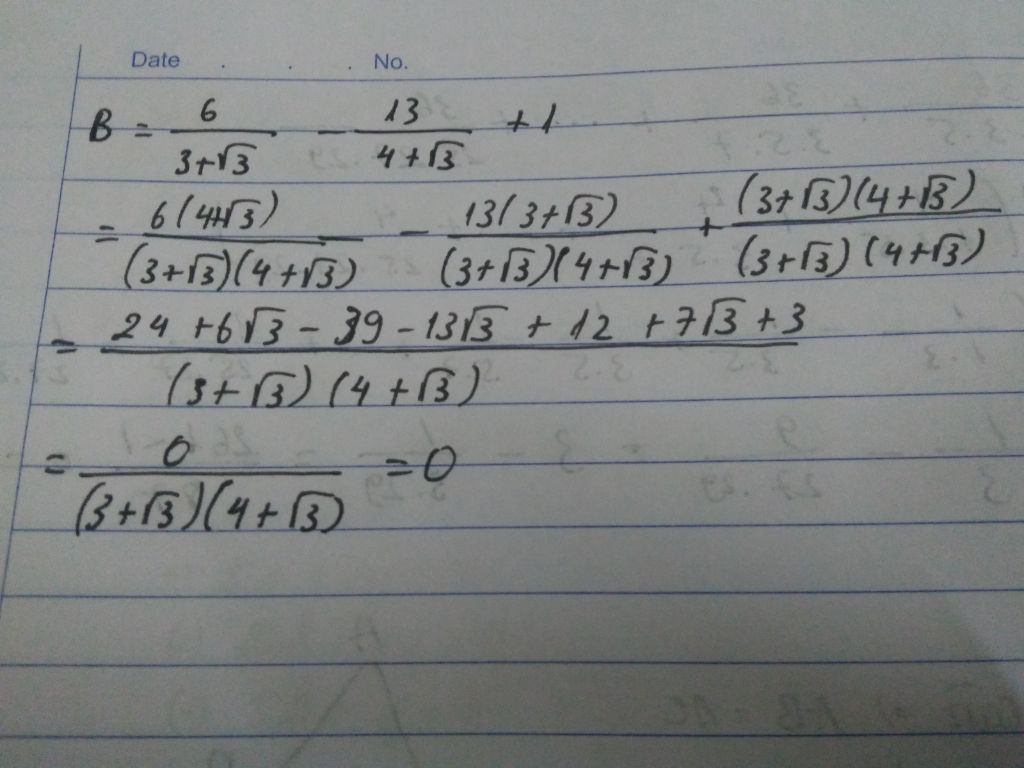 Date . . . No.
B = 6/(3+√3) - 13/(4+√3) + 1
= 6(4+√3)/((3+√3)(4+√3)) - 13(3+√3)/((3+√3)(4+√3)) + (3+√3)(4+√3)/((3+√3)(4+√3))
= (24 + 6√3 - 39 - 13√3 + 12 + 7√3 + 3)/((3+√3)(4+√3))
= 0/((3+√3)(4+√3)) = 0